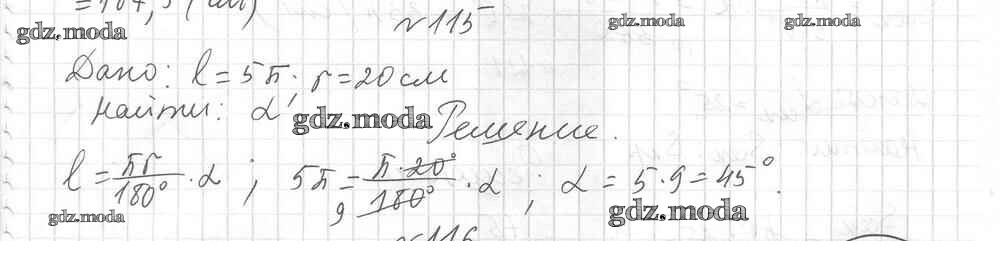 №115
gdz.moda gdz.moda gdz.moda
Дано: l = 5π; r = 20 см
Найти: α
gdz.moda Решение.
l = πr/180° · α ; 5π = π·20°/180° · α ; α = 5·9 = 45°.
9
gdz.moda gdz.moda
№116